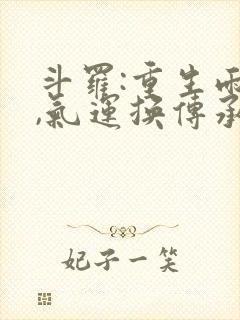 斗羅:重生雨
,氣運換傳承
妃子一笑